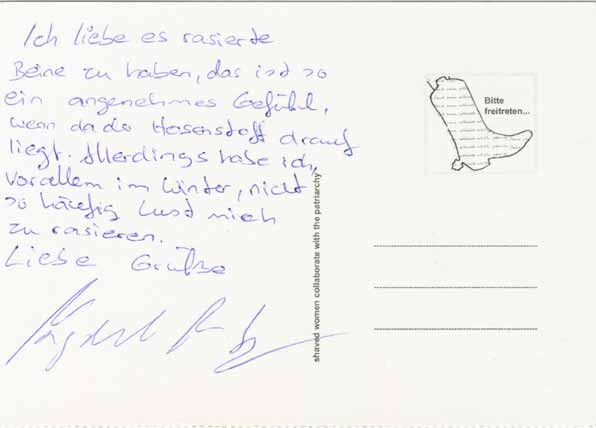 Ich liebe es rasierte
Beine zu haben, das ist so
ein angenehmes Gefühl,
wenn da do Hosenstoff drauf
liegt. Allerdings habe ich,
vorallem im Winter, nicht
so häufig Lust mich
zu rasieren.
Liebe Grüße
shaved women collaborate with the patriarchy
Bitte
freitreten...